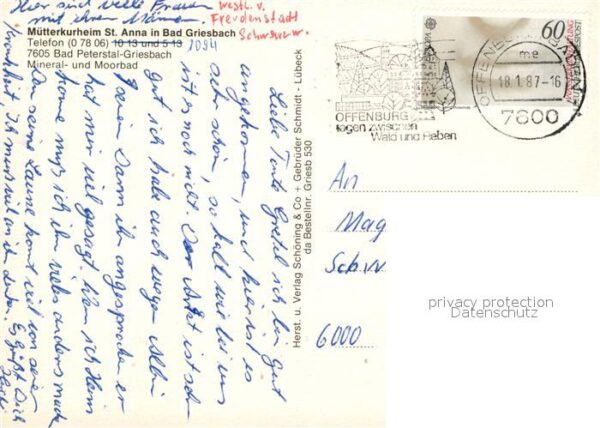 Hier sind viele Frauen
mit ihren Männern.
westl. v.
Freudenstadt
Schwarzw.
Mütterkurheim St. Anna in Bad Griesbach
Telefon (0 78 06) 10 13 und 5 13 1094
7605 Bad Peterstal-Griesbach
Mineral- und Moorbad
Liebe Tante Gretel ich bin gut
angekommen, und hier ist es
sehr schön, so kalt wie bei uns
ist es noch nicht. Der Arzt ist sehr
gut ich habe auch wegen
ihn angesprochen er
hat mir viel gesagt. Wen ich Heim
komme muß ich vieles anders mach
den seine Laune komt viel von seiner
Krankheit. Ich muß viel an ihn denken. Es grüßt Dich
Herst. u. Verlag Schöning & Co + Gebrüder Schmidt - Lübeck
da Bestellnr. Griesb 530
60
OFFENBURG
18.1.87-16
me
7600
OFFENBURG
tagen zwischen
Wald und Reben
An
Mag
Schw
6000
privacy protection
Datenschutz